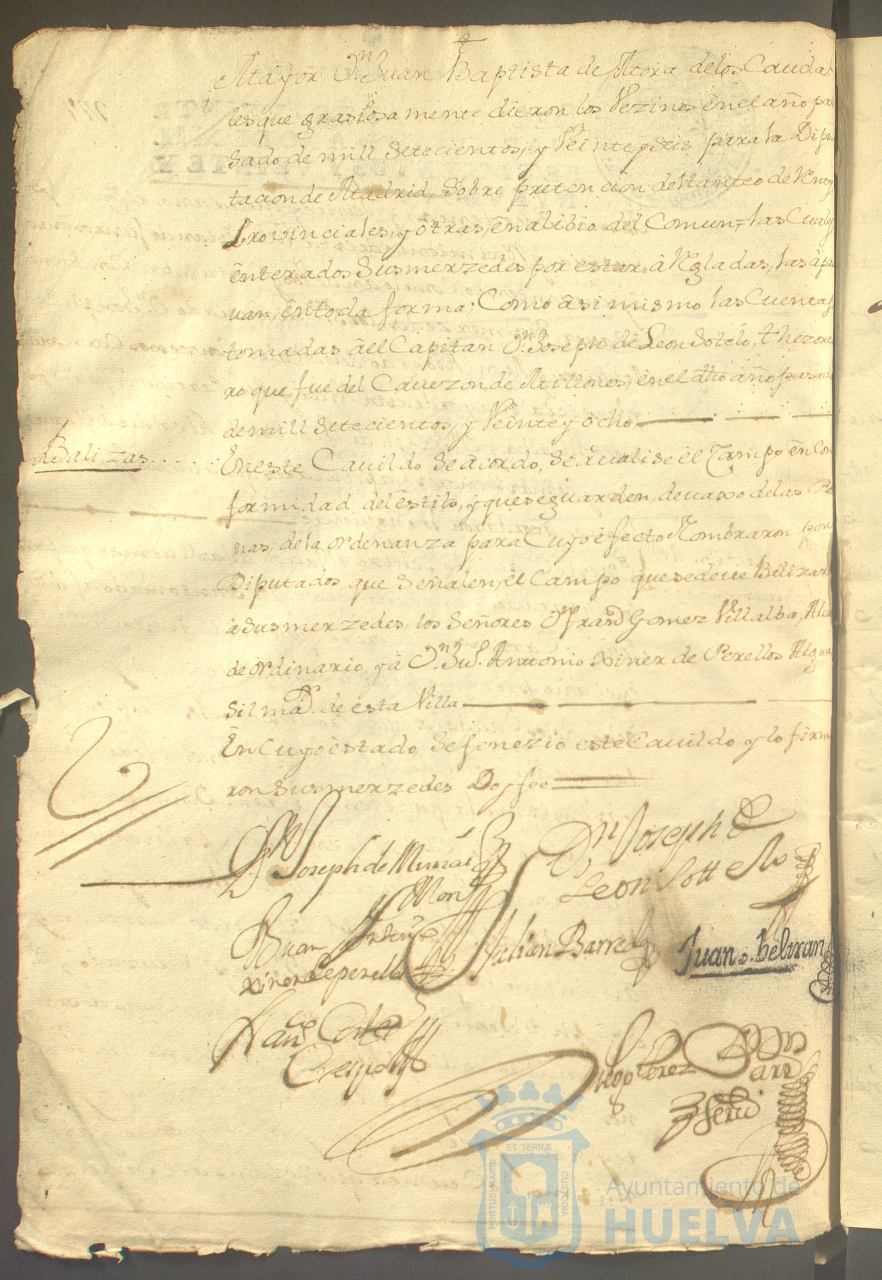 Mayor Dn. Juan Baptista de Mora de los Cauda
les que graciosamente dieron los Vezinos en el año pa
sado de mill Setecientos, y Veinte y seis para la Dipu
tacion de Madrid, Sobre pretencion del tanteo de Rentas
Provinciales, y otras, en alibio del Comun, las Cuales
enterados Sus merzedes por estar arregladas, las apru
uan, en toda forma; Como asimismo las Cuentas
tomadas a el Capitan Dn. Joseph de Leon Sotelo, thezore
ro que fue del Cauezon de Millones, en el dho año pasado
de mill Setecientos, y Veinte y ocho
Balizas
En este Cauildo Se acordo, Se a el Campo en Con
formidad, del estilo, y que se guarden, deuaxo de las Pe
nas, de la ordenanza para Cuyo efecto Nombraron por
Diputados que Señalen, el Campo que se deue Belizar
a Sus merzedes, los Señores Dn. Gomez Villalba, Alcal
de ordinario, y a Dn. Jul. Antonio Xiner de Perellos Algua
Sil mar. de esta Villa
En Cuyo estado, Se fenezio este Cauildo y lo firma
ron Sus merzedes Doy fee
Dn. Joseph de
Dn. Joseph de
Leon Sottello
Juan
Xiner de perellos
Julian Barreda
Juan beltran
Franco. Cortes
Crespo
Diego Perez
Ayuntamiento de
HUELVA
PORTUS MARIS
ET TERRÆ
CUSTODIA